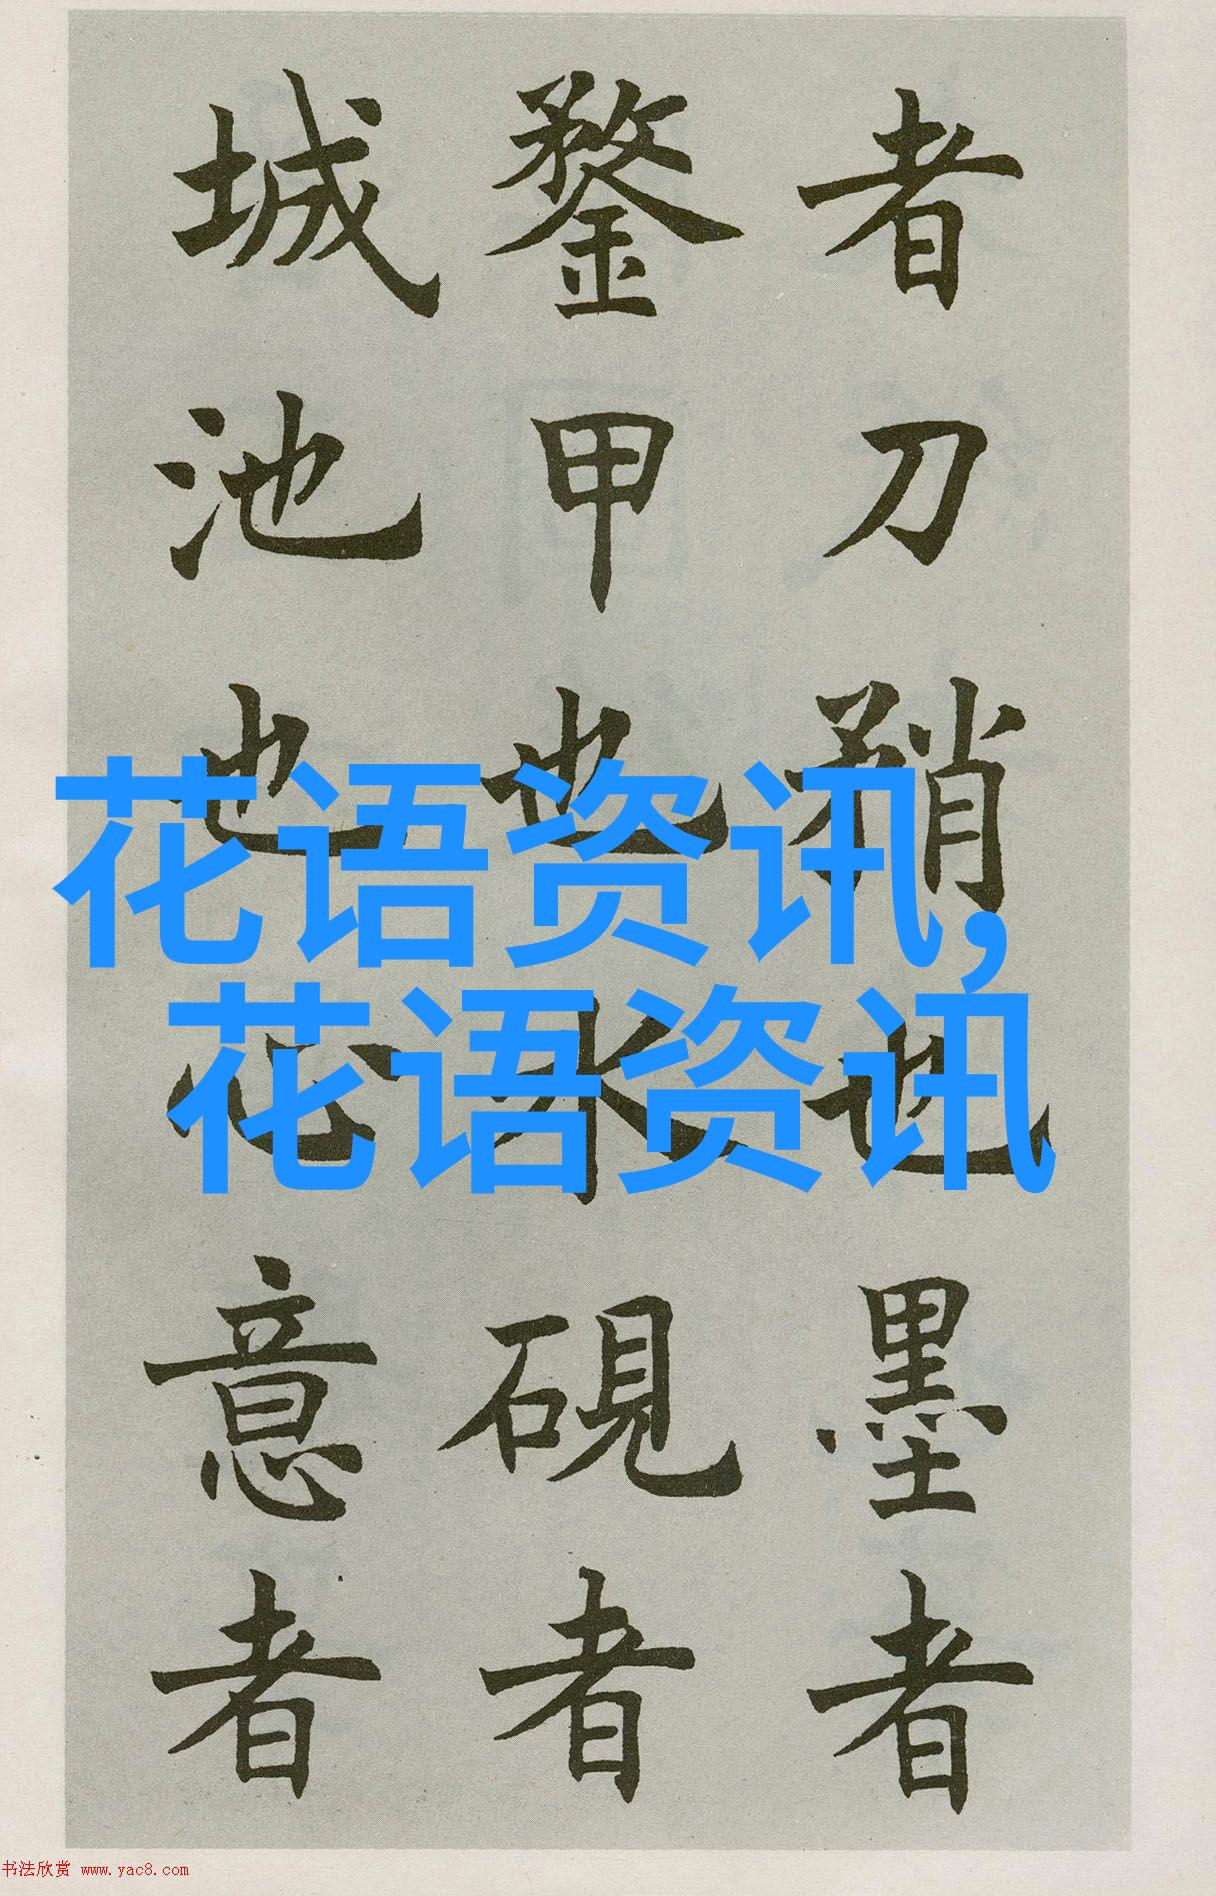 者刀矟也墨者
鍪甲也水硯者
城池也心意者
花语资讯,
花语资讯
书法欣赏 www.yac8.com